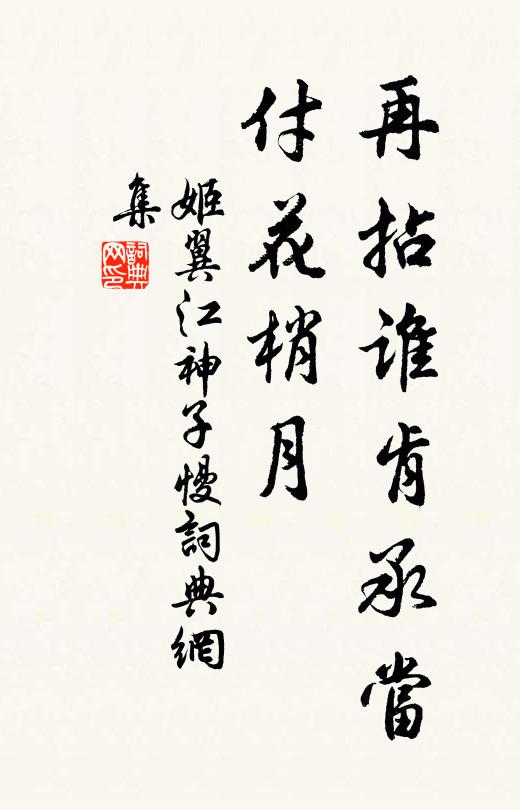 再拈誰肯承當
付花梢月
姬翼江神子慢詞典網
集
詞典网印